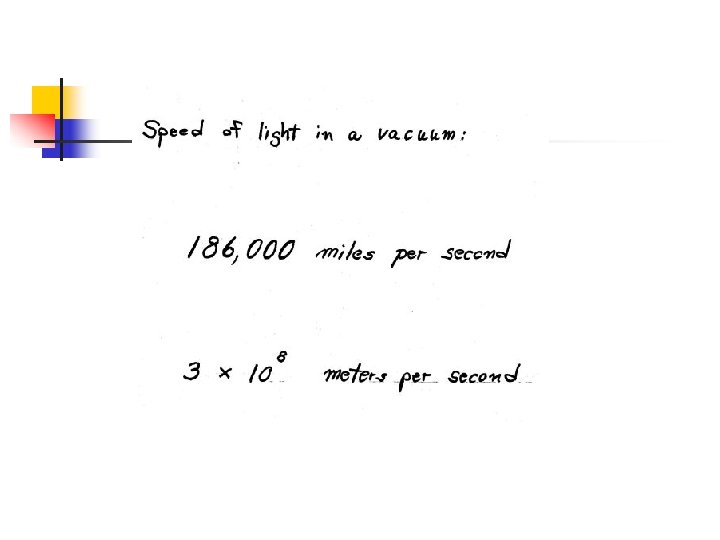 Speed of light in a vacuum:
186,000 miles per second
3 × 10⁸ meters per second